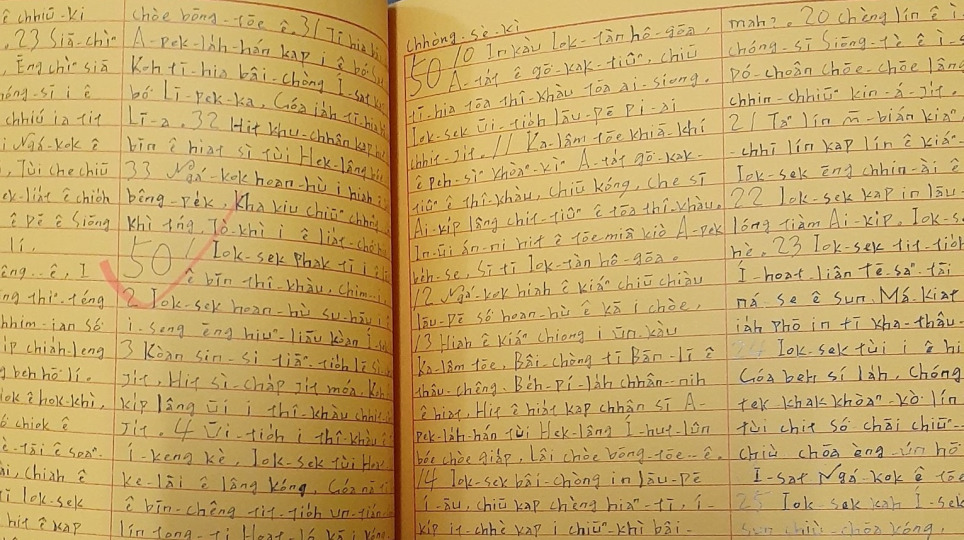 ê chhiú-ki
. 23 Siā-chìⁿ
, Ēng chìⁿ siā
óng-sī i ê
chhiú ia tit
i Ngá-kok ê
, Tùi che chiū
ek-liát ê chióh
ê pē ê Siōng
lí.
êng..ê, I
ng thiⁿ-téng
chhim-ian só͘
ip chiah-leng
g beh hō͘ lí.
lok ê hok-khì,
ó͘ chiok ê
ê-tāi ê soaⁿ-
ài, chiah ê
tī Iok-sek
hit ê kap
chòe bōng-tōe ê. 31 Tī hia bâi
A-pek-láh-hán kap i ê bó͘
Koh tī-hia bâi-chòng Í-sat
bó͘ Lī-pek-ka, Góa iáh tī-hia
Lī-a, 32 Hit khu-chhân kap
bīn ê hiat sī tùi Hek-lâng
33 Ngá-kok hoan-hù i hiah ê
bêng-pék, Kha kiu chiūⁿ chhn̂g
khì tn̄g, Tō-khì i ê liát-chó͘
50 Iok-sek Phak tī i
ê bīn thî-khàu, chim
2 Iok-sek hoan-hù su-hāu i
i-seng ēng hiuⁿ-liāu koàn Í-
3 Koàn sin-si tiāⁿ-tióh
jit, Hit sì-cháp jit móa, Koh
kip lâng ūi i thî-khàu chhit-
jit. 4 Ūi-tióh i thî-khàu ê
í-keng kè, Iok-sek tùi
ke-lāi ê lâng kóng, Góa nā
ê bīn-chêng tit-tióh un-tián
lín tong-
chhòng-sè-kì
50 10 In kàu Iok-tàn hô-gōa,
A-tat ê gō͘-kak-tiûⁿ, chiū
tī-hia tōa thî-khàu tōa ai-siong.
Iok-sek ūi-tióh lāu-pē pi-ai
chhit-jit. 11 Ka-lâm tōe khiā-khí
ê peh-sìⁿ khòaⁿ-kìⁿ A-tat gō͘-kak-
tiûⁿ ê thî-khàu, chiū kóng, che sī
Ai-kip lâng chit-tiûⁿ ê tōa thî-khàu.
In-ūi án-ni hit ê tōe miâ kiò A-pek
béh-se, Sī tī Iok-tàn hô-gōa.
12 Ngá-kok hiah ê kiáⁿ chiū chiàu
lāu-pē só͘ hoan-hù ê kā i chòe,
13 Hiah ê kiáⁿ chiong i ūn-kàu
Ka-lâm tōe, Bâi-chòng tī Bān-lī ê
thâu-chêng. Béh-pí-láh chhân--nih
ê hiat, Hit ê hiat kap chhân sī A-
pek-láh-hán tùi Hek-lâng Í-hut-lûn
bóe chòe giáp, Lâi chòe bōng-tōe--ê.
14 Iok-sek bâi-chòng in lāu-pē
í-āu, chiū kap chèng hiaⁿ-tī, í-
kip it-chhè kap i chiūⁿ-khì bâi-
mah?. 20 Chèng lín ê ì-
chóng-sī Siōng-tè ê ì-sū
pó-choân chōe-chōe lâng
chhin-chhiūⁿ kin-á-jit.
21 Taⁿ lín m̄-bián kiaⁿ,
-chhī lín kap lín ê kiáⁿ-
Iok-sek ēng chhin-ài ê
22 Iok-sek kap in lāu-
lóng tiàm Ai-kip, Iok-s
hè. 23 Iok-sek tit-tióh
Í-hoat liân Tē-saⁿ-tāi
ná-se ê sun, Má-kiat
iáh phō in tī kha-thâu-
24 Iok-sek tùi i ê hiaⁿ
Góa beh sí láh, Chóng
tek khak khòaⁿ-kò͘ lín
tùi chit só͘ chāi chiūⁿ-
chiù chōa èng-ún hō͘
Í-sat Ngá-kok ê tōe
25 Iok-sek kah Í-sek
sun chiù-chōa kóng,